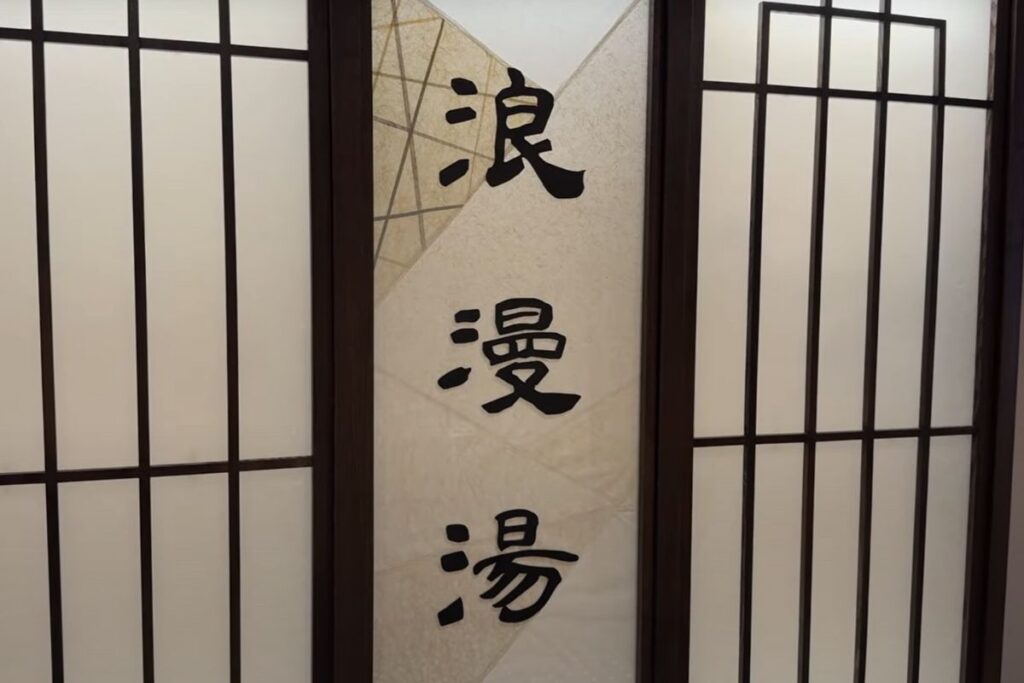 浪漫湯